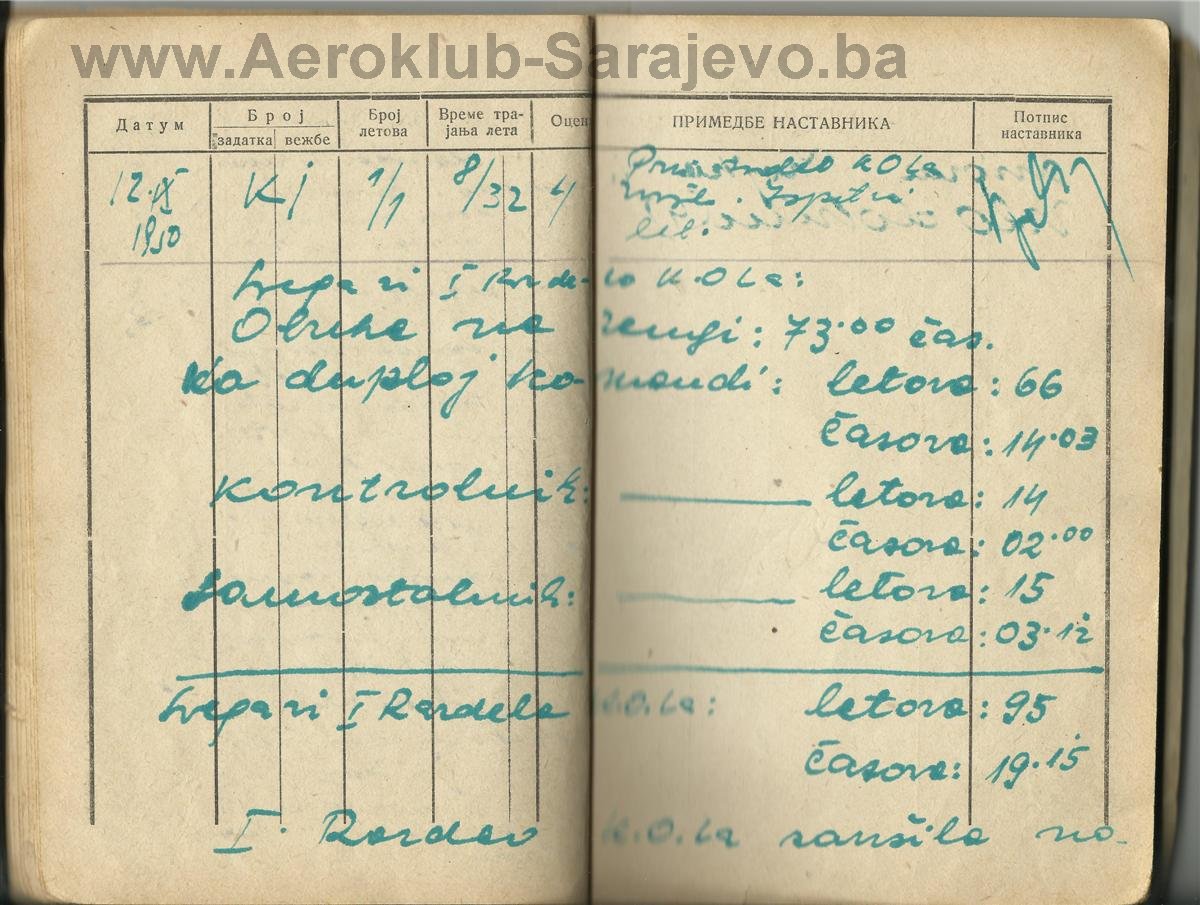 www.Aeroklub-Sarajevo.ba
Датум
Број
задатка вежбе
Број летова
Време тра-
јања лета
Оцен
ПРИМЕДБЕ НАСТАВНИКА
Потпис
наставника
12.IX Kj 1/1 8/32 4
1950
K.O.La
let.
Svega zi I Razde- la K.O.La:
Obuka na zemlji: 73.00 čas.
Na duploj ko- mandi: letova: 66
časova: 14.03
Kontrolnih: letova: 14
časova: 02.00
Samostalnih: letova: 15
časova: 03.12
Svega zi I Razdela K.O.La: letova: 95
časova: 19.15
I. Razdeo K.O.La završila na-